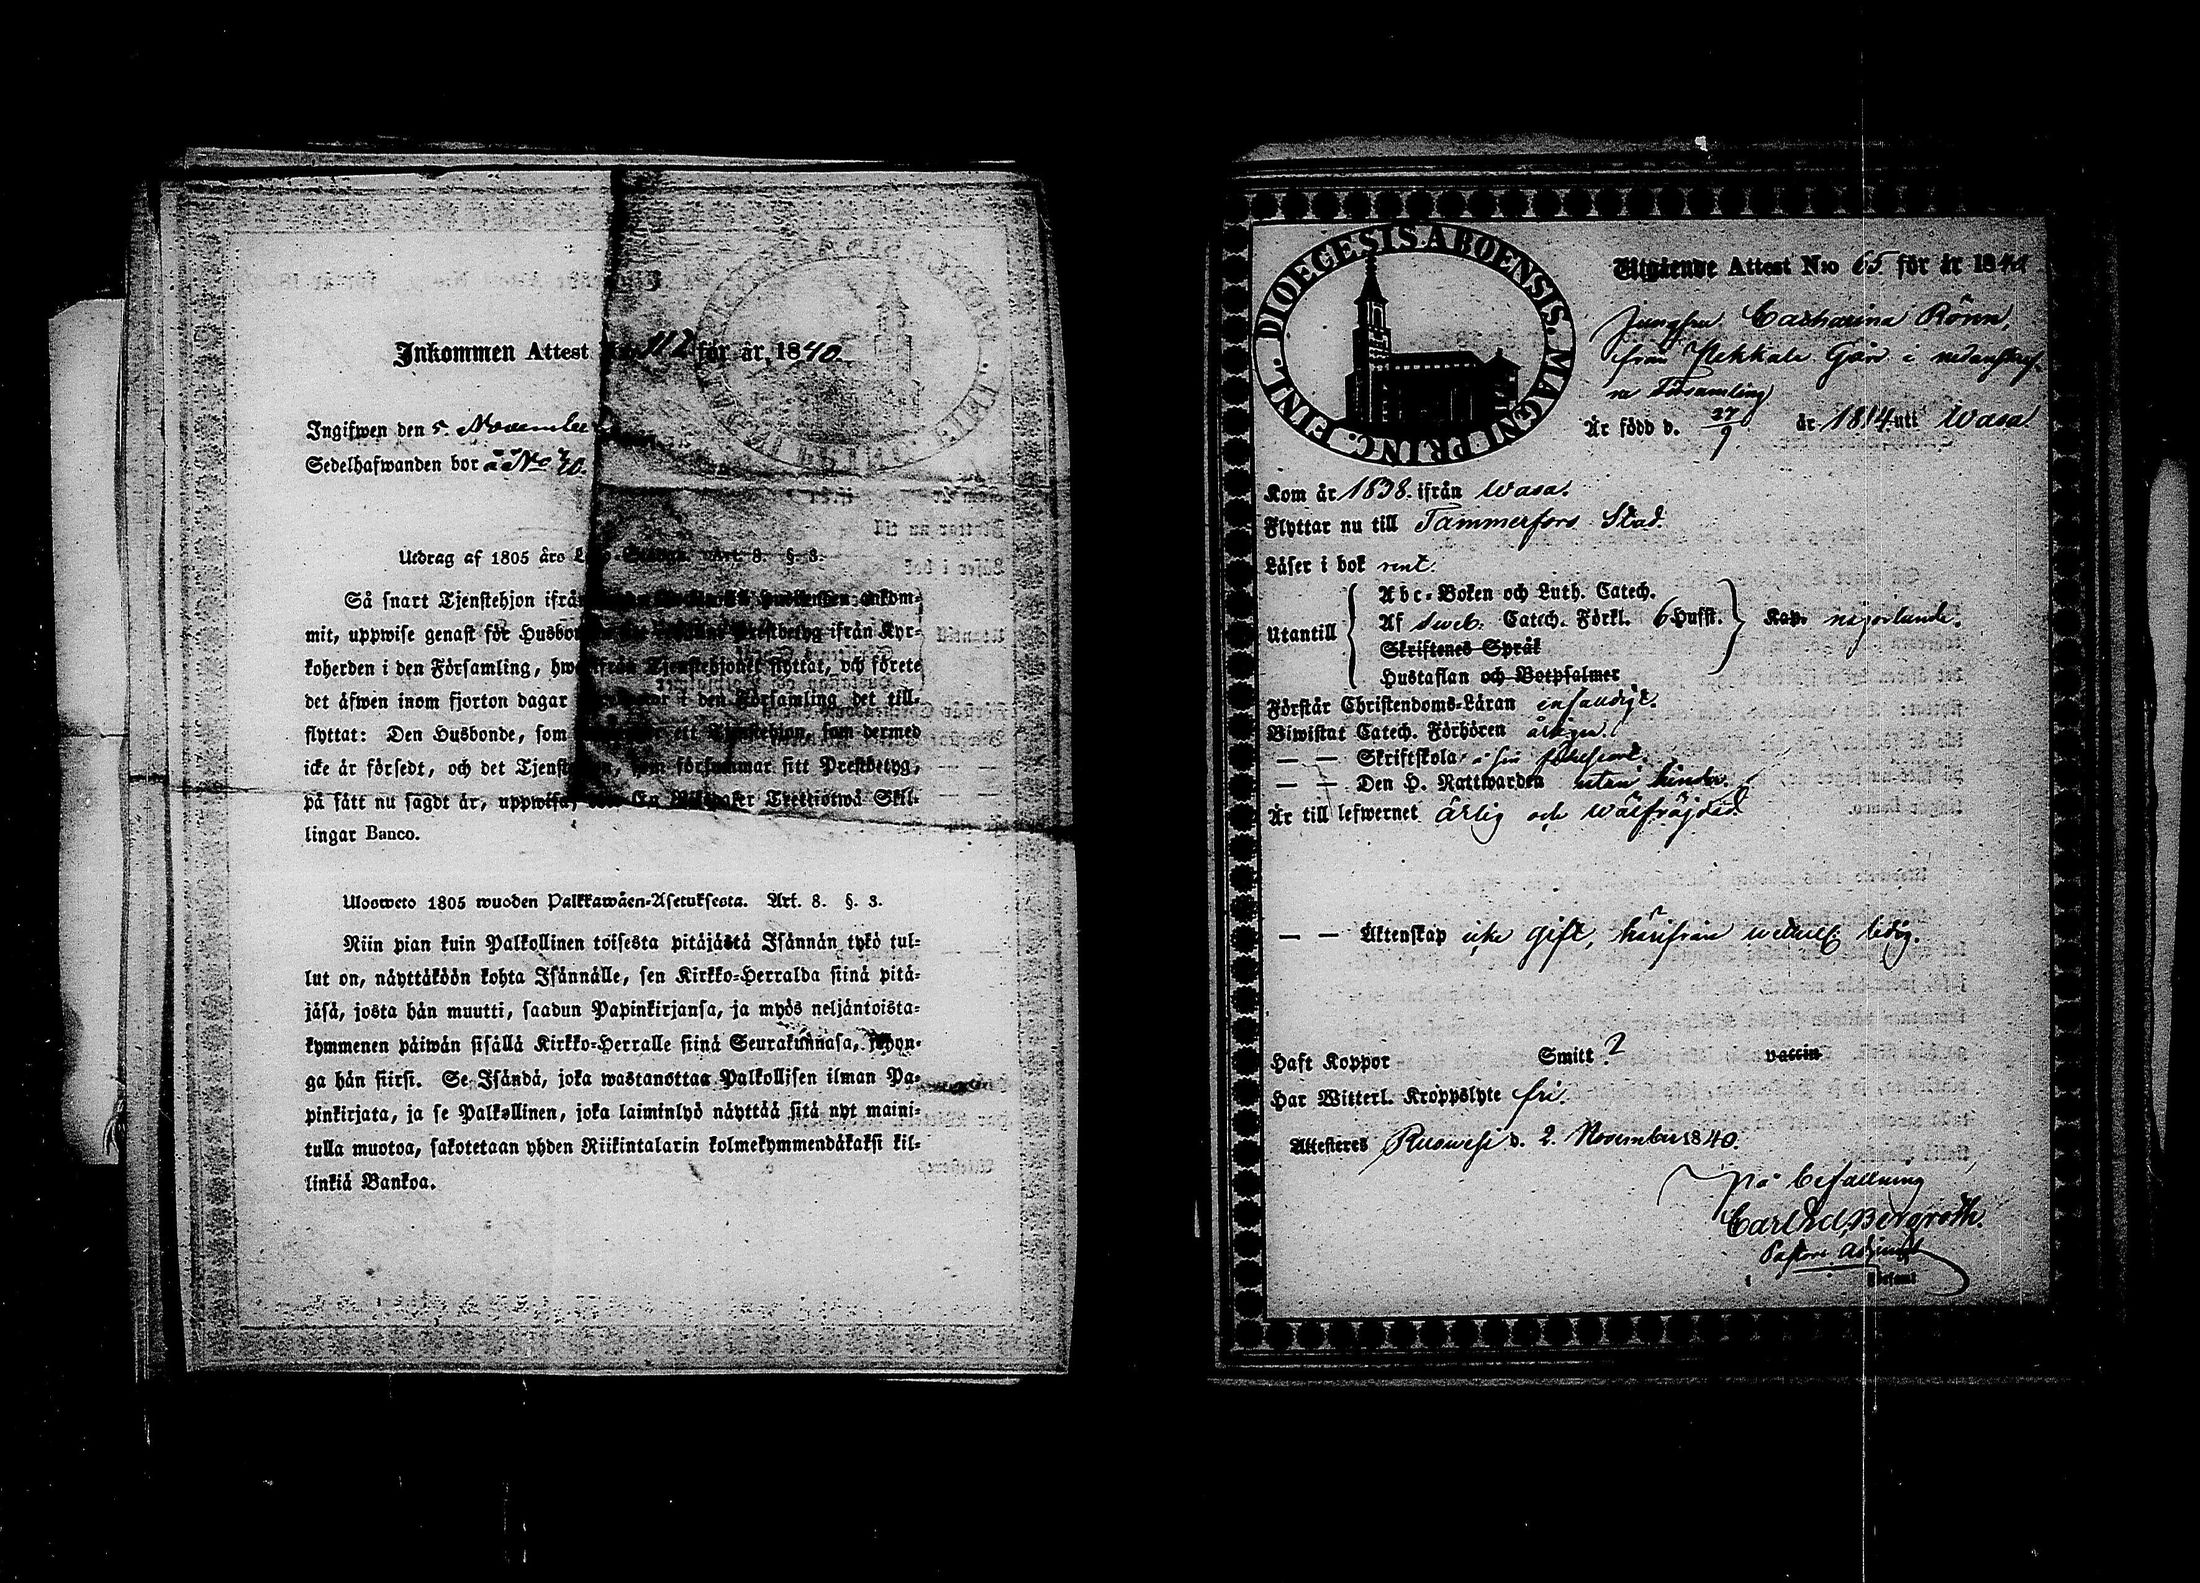 Inkommen Attest N:o 112 för år 1840.
Ingifwen den 5. November
Sedelhafwanden bor å N:o 40.
Utdrag af 1805 års Lego-Stadga. Art. 8. §. 3.
Så snart Tjenstehjon ifrån ankom-
mit, uppwise genast för Husbonden Prestbetyg ifrån Kyr-
koherden i den Församling, hwarifrån Tjenstehjonet flyttat, och förete
det äfwen inom fjorton dagar i den Församling det till-
flyttat: Den Husbonde, som ett Tjenstehjon, som dermed
icke är försedt, och det Tjenstehjon, som försummar sitt Prestbetyg,
på sätt nu sagdt är, uppwisa, En Riksdaler Trettiotwå Skil-
lingar Banco.
Ulosweto 1805 wuoden Palkkawäen-Asetuksesta. Art. 8. §. 3.
Niin pian kuin Palkollinen toisesta pitäjästä Isännän tykö tul-
lut on, näyttäköön kohta Isännälle, sen Kirkko-Herralda siinä pitä-
jäsä, josta hän muutti, saadun Papinkirjansa, ja myös neljäntoista-
kymmenen päiwän sisällä Kirkko-Herralle siinä Seurakunnasa, johon-
ga hän siirsi. Se Isändä, joka wastanottaa Palkollisen ilman Pa-
pinkirjata, ja se Palkollinen, joka laiminlyö näyttää sitä nyt maini-
tulla muotoa, sakotetaan yhden Riikintalarin kolmekymmendäkaksi kil-
linkiä Bankoa.
DIOECESIS ABOENSIS. MAGNI PRINC. FINL.
Utgående Attest N:o 65 för år 1840
Jungfru Catharina Rönn,
från Pekkala Gård i nedanskref-
na Församling
Är född d. 27/9 år 1814 uti Wasa.
Kom år 1838. ifrån Wasa.
Flyttar nu till Tammerfors Stad.
Läser i bok rent.
Utantill
Abc-Boken och Luth. Catech.
Af Sweb. Catech. Förkl. 6 Hufst.
Skriftenes Språk
Hustaflan och Botpsalmer
Kap. någorlunda.
Förstår Christendoms-Läran enfaldigt.
Biwistat Catech. Förhören årligen.
— — Skriftskola i sin
— — Den H. Nattwarden utan hinder.
Är till lefwernet ärlig och wälfräjdad.
— — Äktenskap icke gift, härifrån ledig.
Haft Koppor Smitt ? vaccin
Har Witterl. Kroppslyte fri.
Attesteras Ruowesi d. 2. November 1840.
På befallning
Carl Ed. Bergroth.
Pastors Adjunct